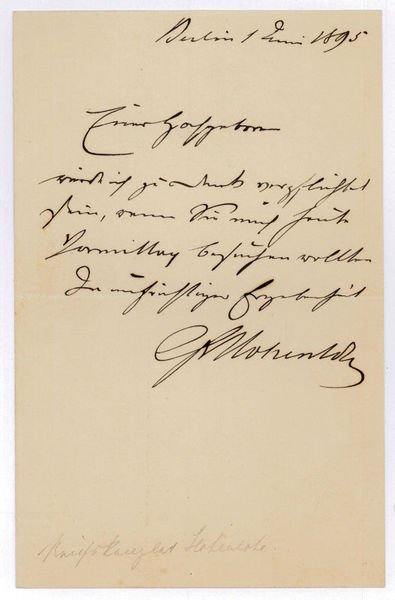 Berlin 1 Juni 1895
Euer Hochgeboren
würde ich zu Dank verpflichtet
sein, wenn Sie mich heute
Vormittag besuchen wollten
In aufrichtiger Ergebenheit
CHohenlohe
Reichskanzler Hohenlohe.